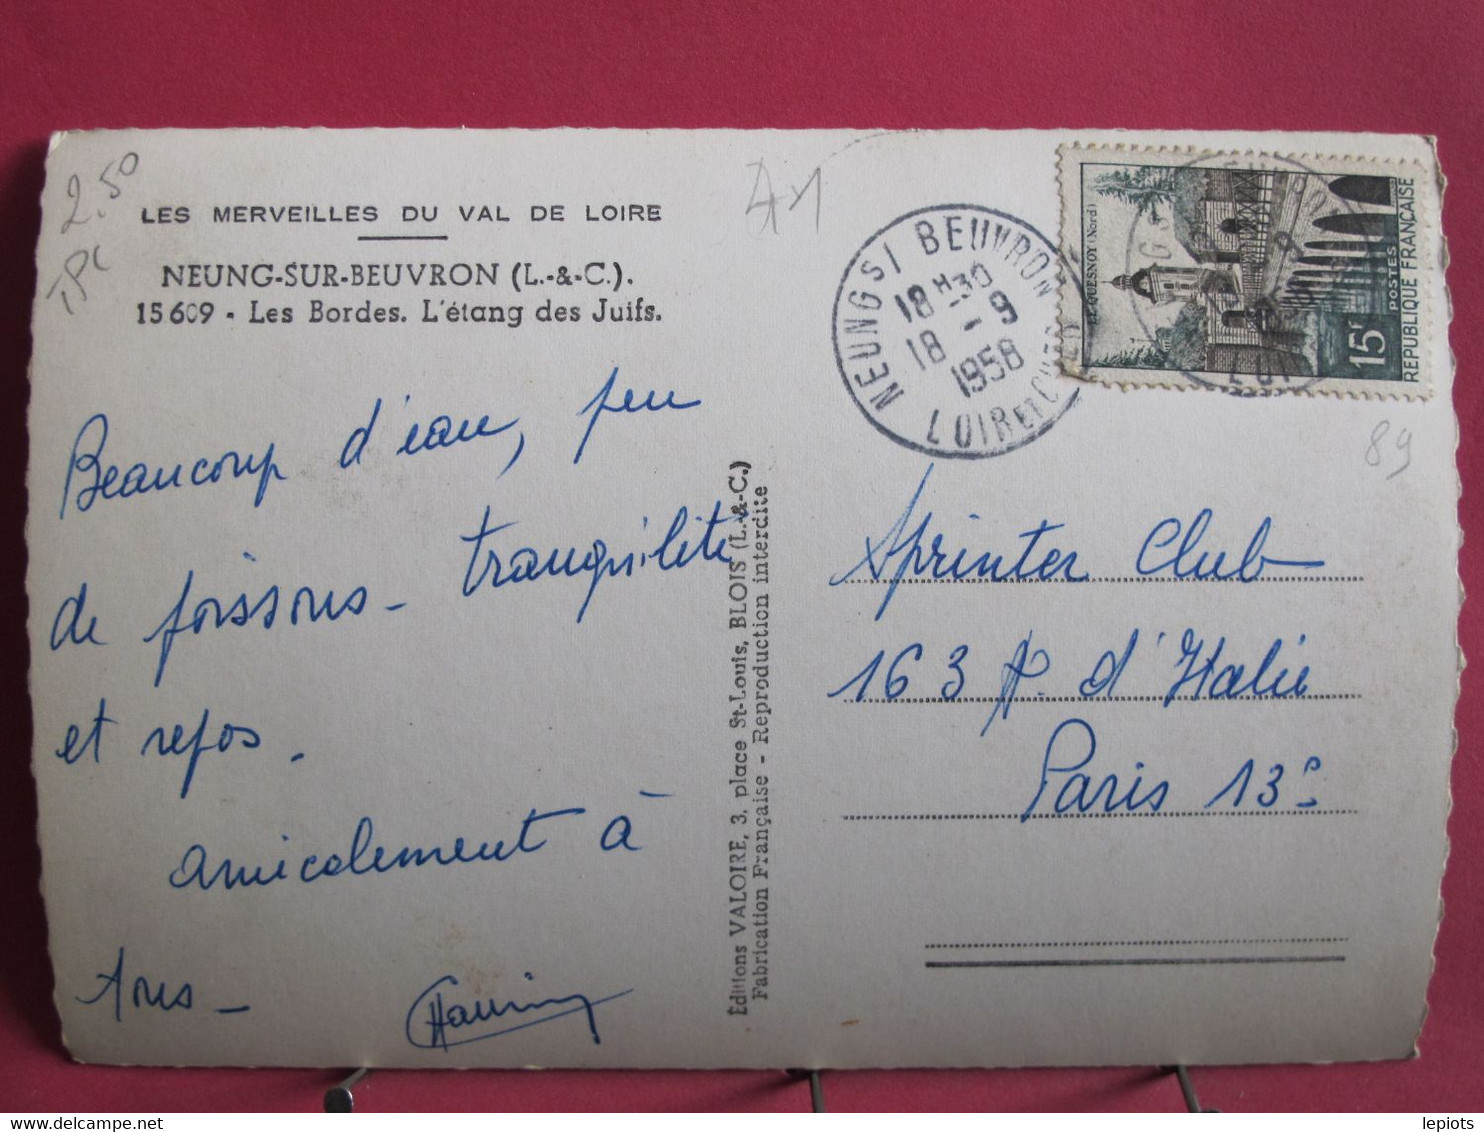 2.50
TPC
41
LES MERVEILLES DU VAL DE LOIRE
NEUNG-SUR-BEUVRON (L.-&-C.).
15 609 - Les Bordes. L'étang des Juifs.
Beaucoup d'eau, peu
de poissons - tranquilité
et repos.
amicalement à
Tous -
Éditions VALOIRE, 3, place St-Louis, BLOIS (L.-&-C.)
Fabrication Française - Reproduction interdite
NEUNG S/ BEUVRON
18 H 30
18 - 9
1958
LOIR ET CHER
LE QUESNOY (Nord)
15F
POSTES
REPUBLIQUE FRANÇAISE
89
Sprinter Club
163 A. d'Italie
Paris 13e
lepiots